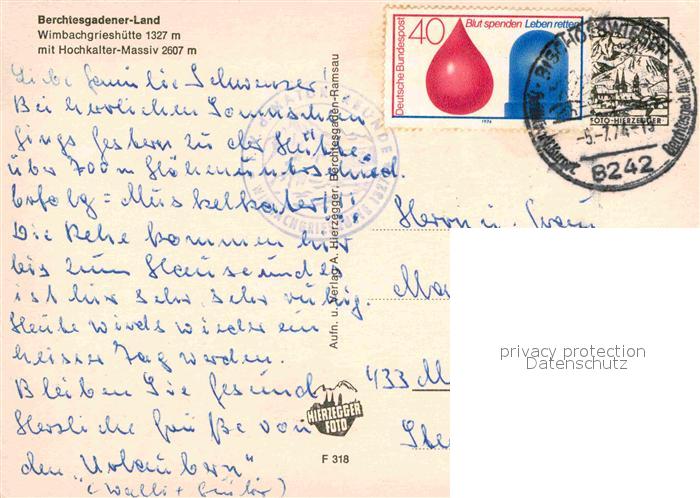 Berchtesgadener-Land
Wimbachgrieshütte 1327 m
mit Hochkalter-Massiv 2607 m
Liebe Familie
Bei herrlichem Sonnenschein
gings gestern zu der Hütte,
über 700 m Höhenunterschied.
Erfolg = Muskelkater!!
Die Rehe kommen hier
bis zum Haus und es
ist hier sehr, sehr ruhig.
Heute wirds wieder ein
heißer Tag werden.
Bleiben Sie gesund
Herzliche Grüße von
den "Urlaubern"
(Walli +
Aufn. u. Verlag A. Hierzegger, Berchtesgaden-Ramsau
HIERZEGGER
FOTO
F 318
Deutsche Bundespost
40
Blut spenden Leben retten
1974
BISCHOFSWIESEN
-5.-7.74-
8242
FOTO-HIERZEGGER
Herrn u. Frau
433 M
privacy protection
Datenschutz